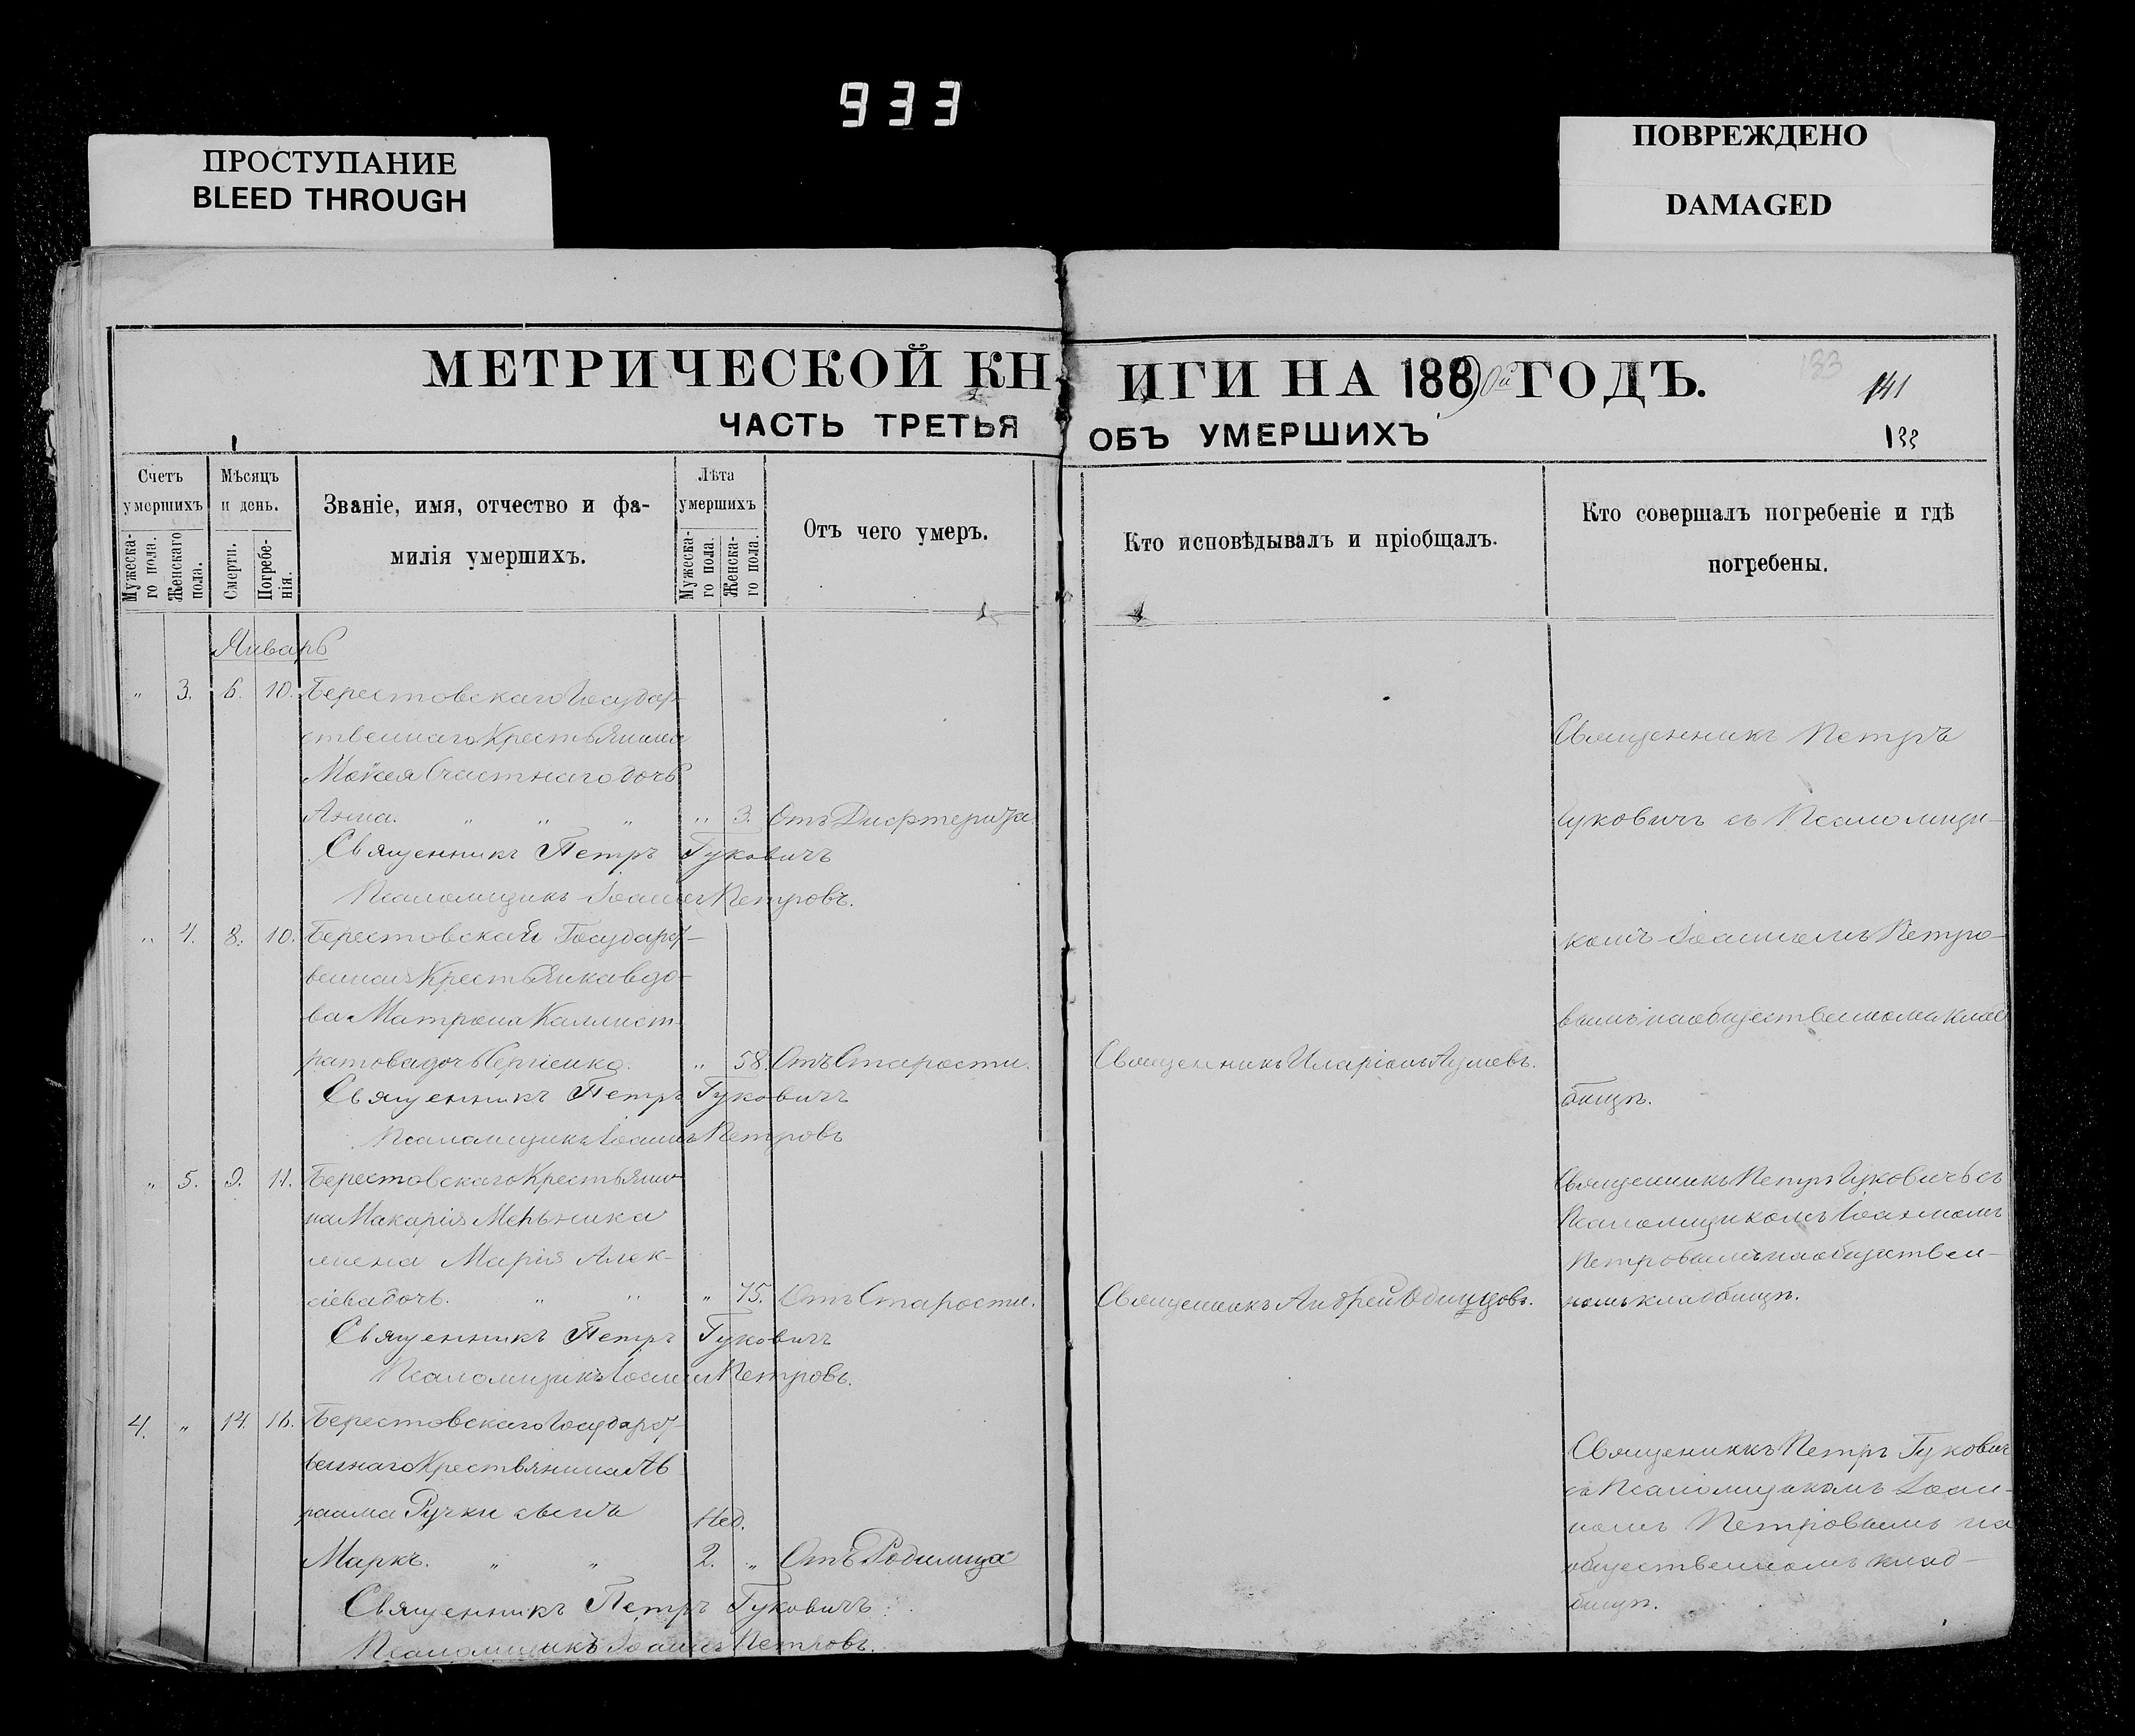 933
ПРОСТУПАНИЕ
BLEED THROUGH
ПОВРЕЖДЕНО
DAMAGED
МЕТРИЧЕСКОЙ КНИГИ НА 1890й ГОДЪ.
133
141
ЧАСТЬ ТРЕТЬЯ ОБЪ УМЕРШИХЪ
133
Счетъ умершихъ
Мужеска-го пола.
Женскаго пола.
Мѣсяцъ и день.
Смерти.
Погребе-нія.
Званіе, имя, отчество и фа-
милія умершихъ.
Лѣта умершихъ
Мужеска-го пола.
Женска-го пола.
Отъ чего умеръ.
Кто исповѣдывалъ и пріобщалъ.
Кто совершалъ погребеніе и гдѣ
погребены.
Январь
" 3. 6. 10. Берестовскаго Государ-
ственнаго Крестьянина
Моѵсея Счастнаго дочь
Анна. " " " " 3. Отъ Дифтерита.
Священникъ Петръ Гуковичъ
Псаломщикъ Іоаннъ Петровъ.
Священникъ Петръ
Гуковичъ съ Псаломщи-
комъ Іоанномъ Петро-
вымъ на общественномъ клад
бищѣ.
" 4. 8. 10. Берестовская Государст-
венная Крестьянка вдо-
ва Матрона Каллист-
ратова дочь Сергіенко. " 58. Отъ Старости. Священникъ Иларіонъ
Священникъ Петръ Гуковичъ
Псаломщикъ Іоаннъ Петровъ
" 5. 9. 11. Берестовскаго Крестьяни-
на Макарія Мельника
жена Марія Алек-
сіева дочь. " " " 75. Отъ Старости. Священникъ Андрей Одинцовъ.
Священникъ Петръ Гуковичъ
Псаломщикъ Іоаннъ Петровъ.
Священникъ Петръ Гуковичъ съ
Псаломщикомъ Іоанномъ
Петровымъ на обществен-
номъ кладбищѣ.
4. " 14. 16. Берестовскаго Государст-
веннаго Крестьянина Ав
раама Ручки сынъ Нед.
Маркъ. " " 2. " Отъ Родимца
Священникъ Петръ Гуковичъ
Псаломщикъ Іоаннъ Петровъ.
Священникъ Петръ Гукович
съ Псаломщикомъ Іоан-
номъ Петровымъ на
общественномъ клад-
бищѣ.